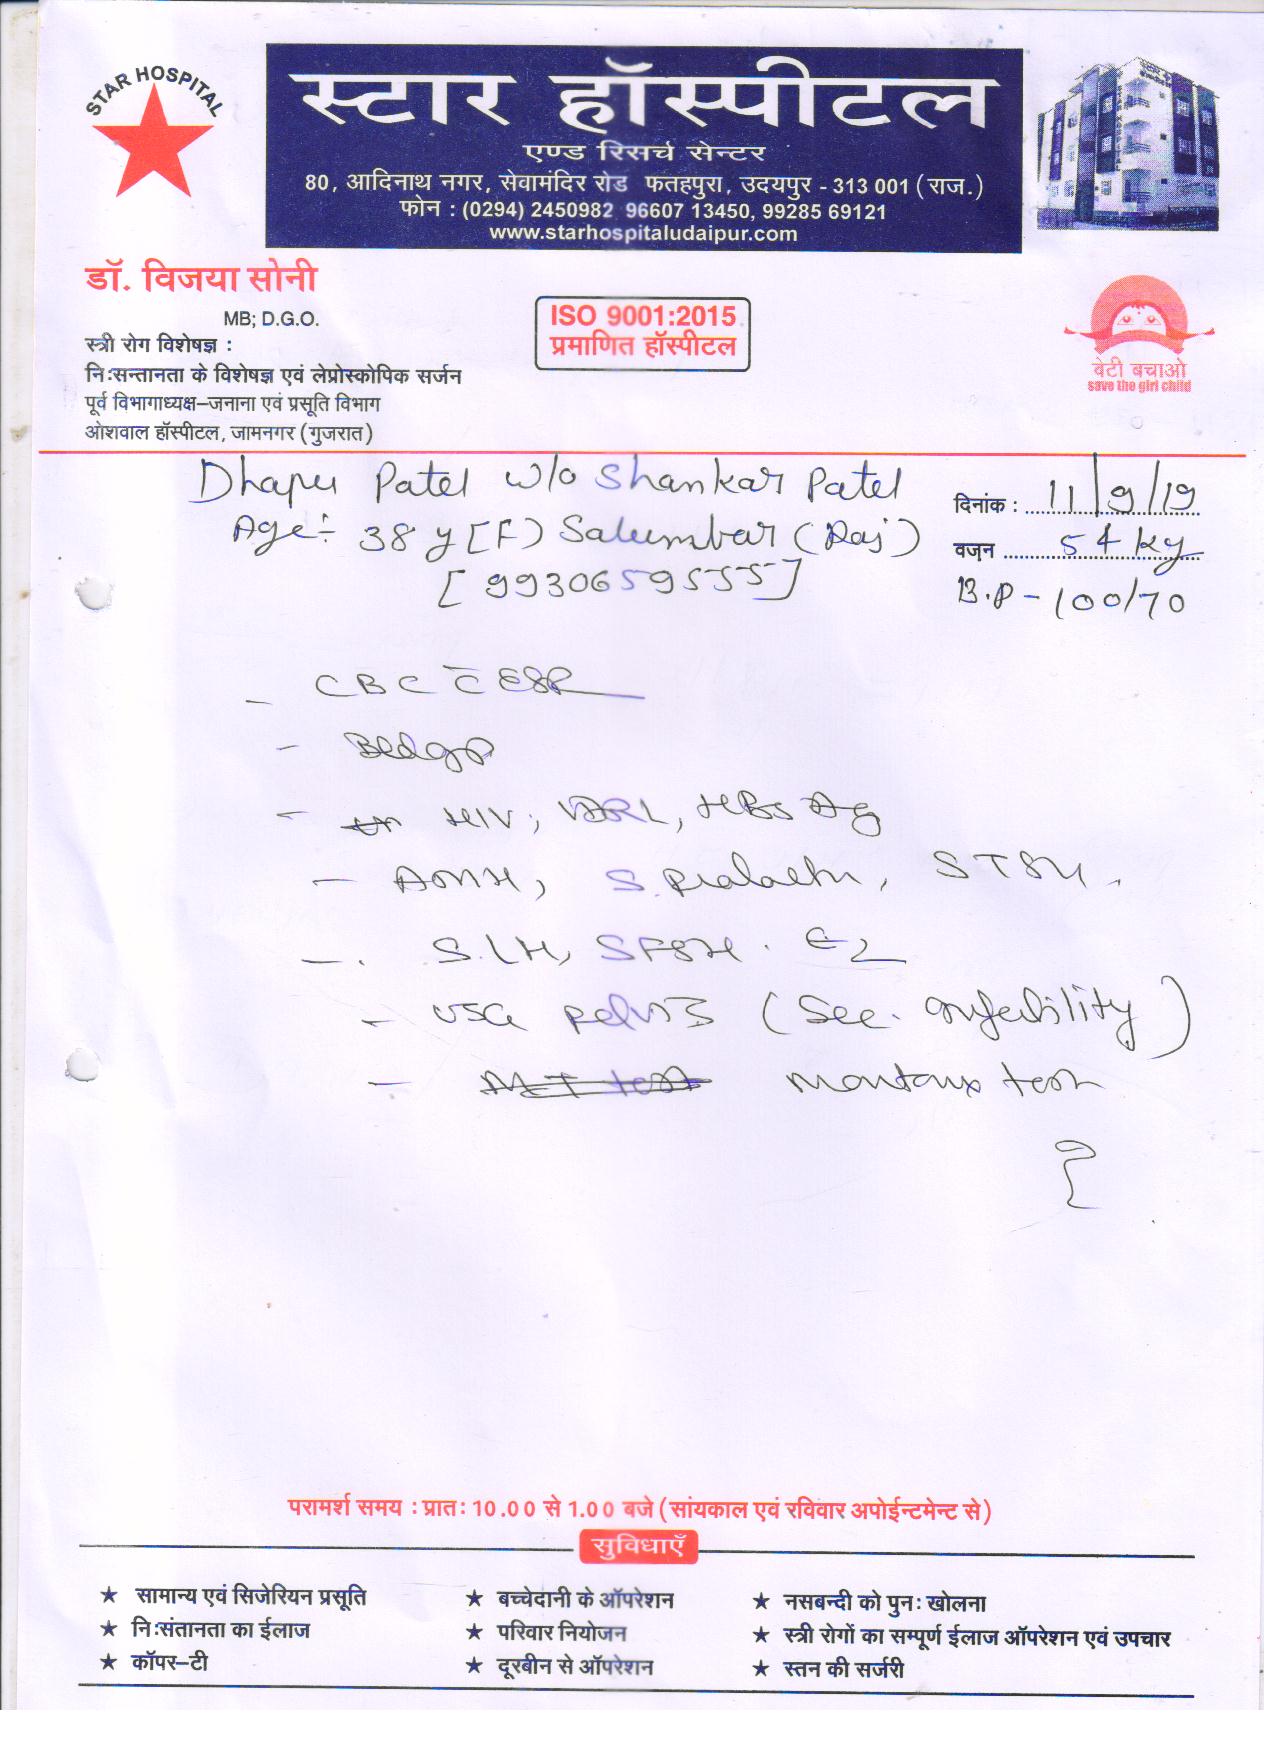 STAR HOSPITAL
स्टार हॉस्पीटल
एण्ड रिसर्च सेन्टर
80, आदिनाथ नगर, सेवामंदिर रोड फतहपुरा, उदयपुर - 313 001 (राज.)
फोन : (0294) 2450982 96607 13450, 99285 69121
www.starhospitaludaipur.com
डॉ. विजया सोनी
MB; D.G.O.
स्त्री रोग विशेषज्ञ :
निःसन्तानता के विशेषज्ञ एवं लेप्रोस्कोपिक सर्जन
पूर्व विभागाध्यक्ष–जनाना एवं प्रसूति विभाग
ओशवाल हॉस्पीटल, जामनगर (गुजरात)
ISO 9001:2015
प्रमाणित हॉस्पीटल
बेटी बचाओ
save the girl child
Dhapu Patel w/o Shankar Patel
Age:- 38 y [F) Salumbar (Raj)
[9930659555]
दिनांक : 11/9/19
वजन 54 kg
B.P - 100/70
- CBC c̄ ESR
- Bldgp
- HIV, VDRL, HBsAg
- AMH, S.Prolactin, STSH.
- S.LH, SFSH. E2
- USG pelvis (Sec. Infertility)
- Montoux test
परामर्श समय : प्रातः 10.00 से 1.00 बजे (सांयकाल एवं रविवार अपोईन्टमेन्ट से)
सुविधाएँ
★ सामान्य एवं सिजेरियन प्रसूति ★ बच्चेदानी के ऑपरेशन ★ नसबन्दी को पुनः खोलना
★ निःसंतानता का ईलाज ★ परिवार नियोजन ★ स्त्री रोगों का सम्पूर्ण ईलाज ऑपरेशन एवं उपचार
★ कॉपर–टी ★ दूरबीन से ऑपरेशन ★ स्तन की सर्जरी